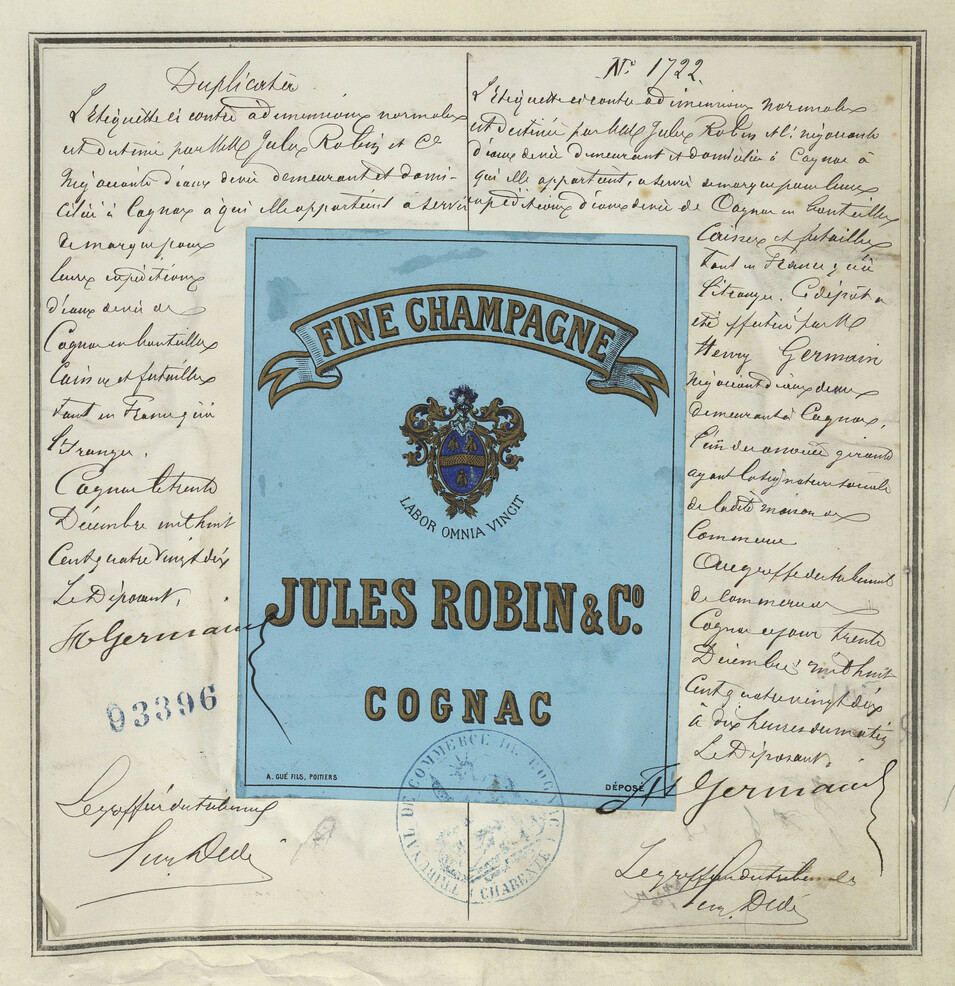 Duplicata
L'étiquette ci contre a dimensions normales
est destinée par MM Jules Robin et Cie
Négociants d'eaux de vie demeurant et domi-
ciliés à Cognac à qui elle appartient à servir
de marque pour
leurs expéditions
d'eaux de vie de
Cognac en bouteilles
Caisses et futailles
tant en France qu'à
l'Etranger.
Cognac le trente
Décembre mil huit
Cent quatre vingt dix
Le Déposant,
H Germain
03396
Le greffier du tribunal
No 1722.
L'Etiquette ci contre a dimensions normales
est destinée par MM Jules Robin et Cie négociants
d'eaux de vie demeurant et domiciliés à Cognac à
qui elle appartient, à servir de marque pour leurs
expéditions d'eaux de vie de Cognac en bouteilles
Caisses et futailles
tant en France qu'à
l'étranger. Ce dépôt a
été effectué par M
Henry Germain
Négociant d'eaux de vie
demeurant à Cognac,
l'un des associés gérants
ayant la signature sociale
de la dite maison de
Commerce
Au greffe du tribunal
de Commerce de
Cognac ce jour trente
Décembre mil huit
Cent quatre vingt dix
à dix heures du matin
Le Déposant,
H Germain
Le greffier du tribunal
FINE CHAMPAGNE
LABOR OMNIA VINCIT
JULES ROBIN & Co.
COGNAC
A. GUÉ FILS, POITIERS
DÉPOSÉ
TRIBUNAL DE COMMERCE DE COGNAC
CHARENTE